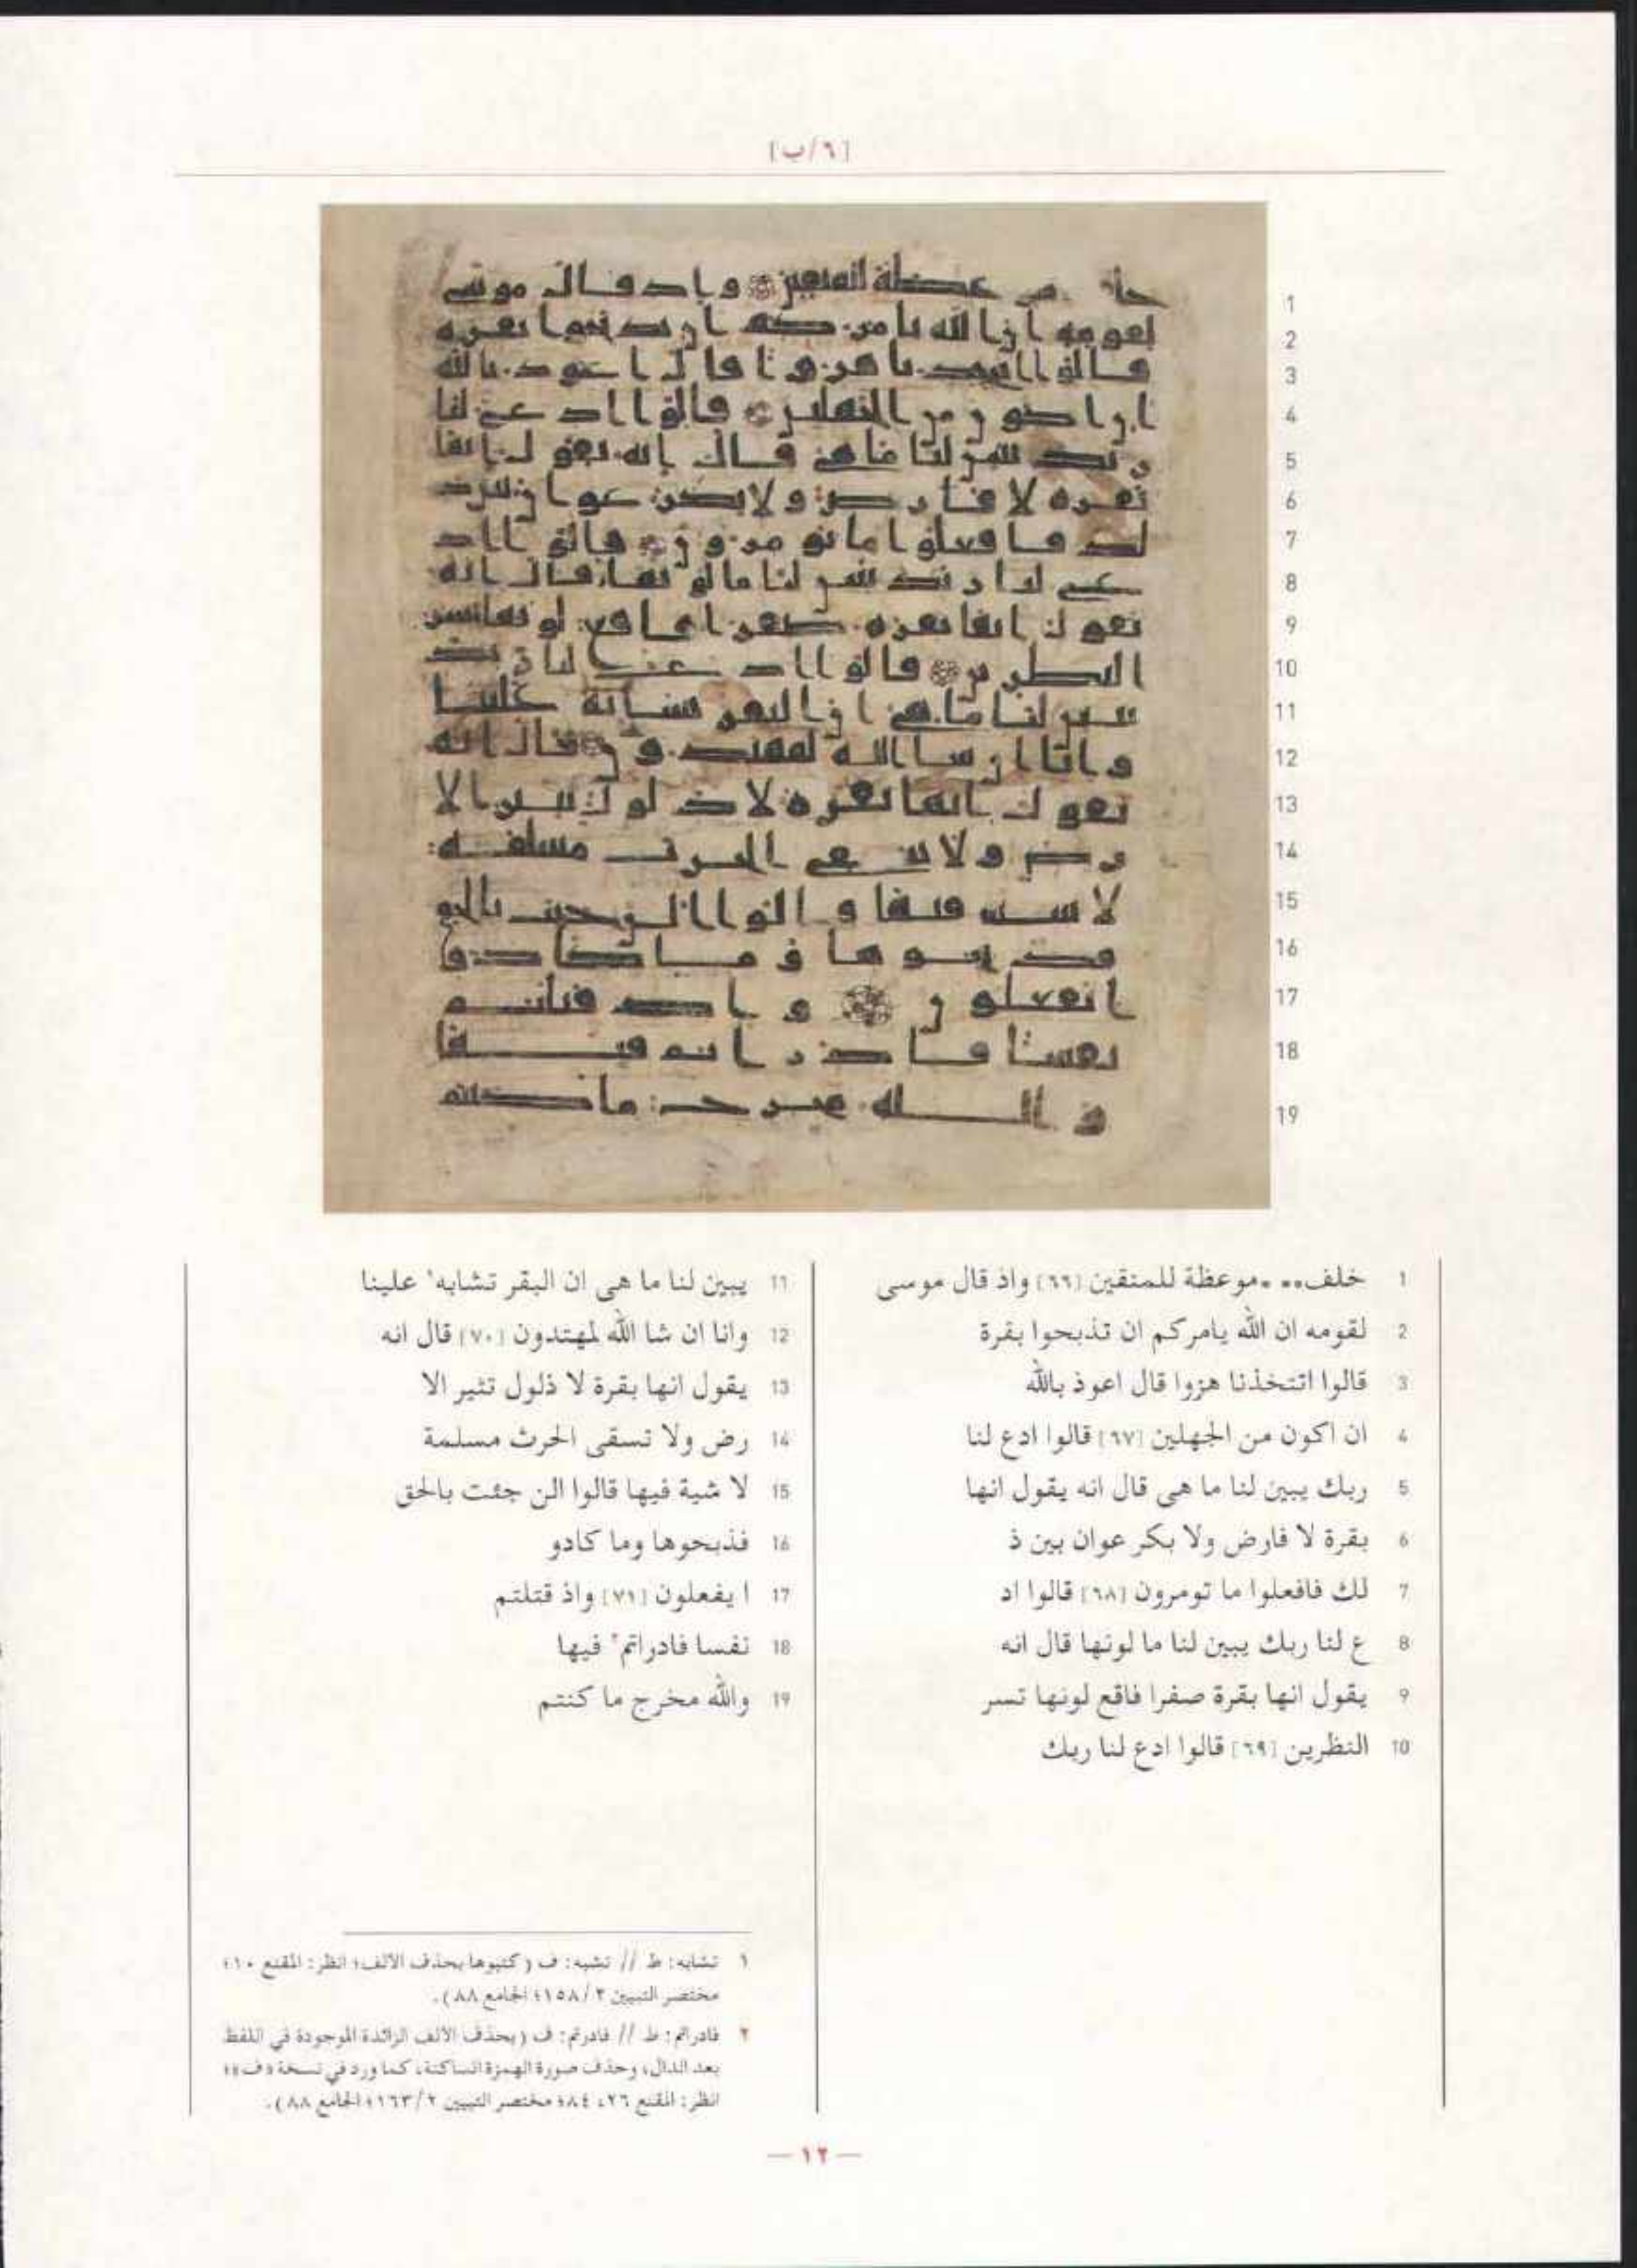 [٦/ب]
1 خلف.. .موعظة للمتقين [٦٦] واذ قال موسى
2 لقومه ان الله يامركم ان تذبحوا بقرة
3 قالوا اتتخذنا هزوا قال اعوذ بالله
4 ان اكون من الجهلين [٦٧] قالوا ادع لنا
5 ربك يبين لنا ما هى قال انه يقول انها
6 بقرة لا فارض ولا بكر عوان بين ذ
7 لك فافعلوا ما تومرون [٦٨] قالوا اد
8 ع لنا ربك يبين لنا ما لونها قال انه
9 يقول انها بقرة صفرا فاقع لونها تسر
10 النظرين [٦٩] قالوا ادع لنا ربك
11 يبين لنا ما هى ان البقر تشابه١ علينا
12 وانا ان شا الله لمهتدون [٧٠] قال انه
13 يقول انها بقرة لا ذلول تثير الا
14 رض ولا تسقى الحرث مسلمة
15 لا شية فيها قالوا الن جئت بالحق
16 فذبحوها وما كادو
17 ا يفعلون [٧١] واذ قتلتم
18 نفسا فادراتم٢ فيها
19 والله مخرج ما كنتم
١ تشابه: ط // تشبه: ف (كتبوها بحذف الألف؛ انظر: المقنع ١٠؛
مختصر التبيين ١٥٨/٢؛ الجامع ٨٨).
٢ فادراتم: ط // فادرتم: ف (بحذف الألف الزائدة الموجودة في اللفظ
بعد الدال، وحذف صورة الهمزة الساكنة، كما ورد في نسخة «ف»؛
انظر: المقنع ٢٦، ٨٤؛ مختصر التبيين ١٦٣/٢؛ الجامع ٨٨).
— ١٢ —